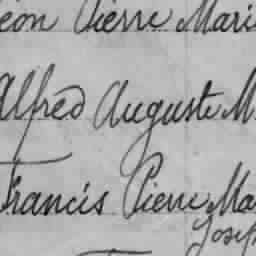 éon Pierre Mari
Alfred Auguste M
Francis Pierre Ma
Josep